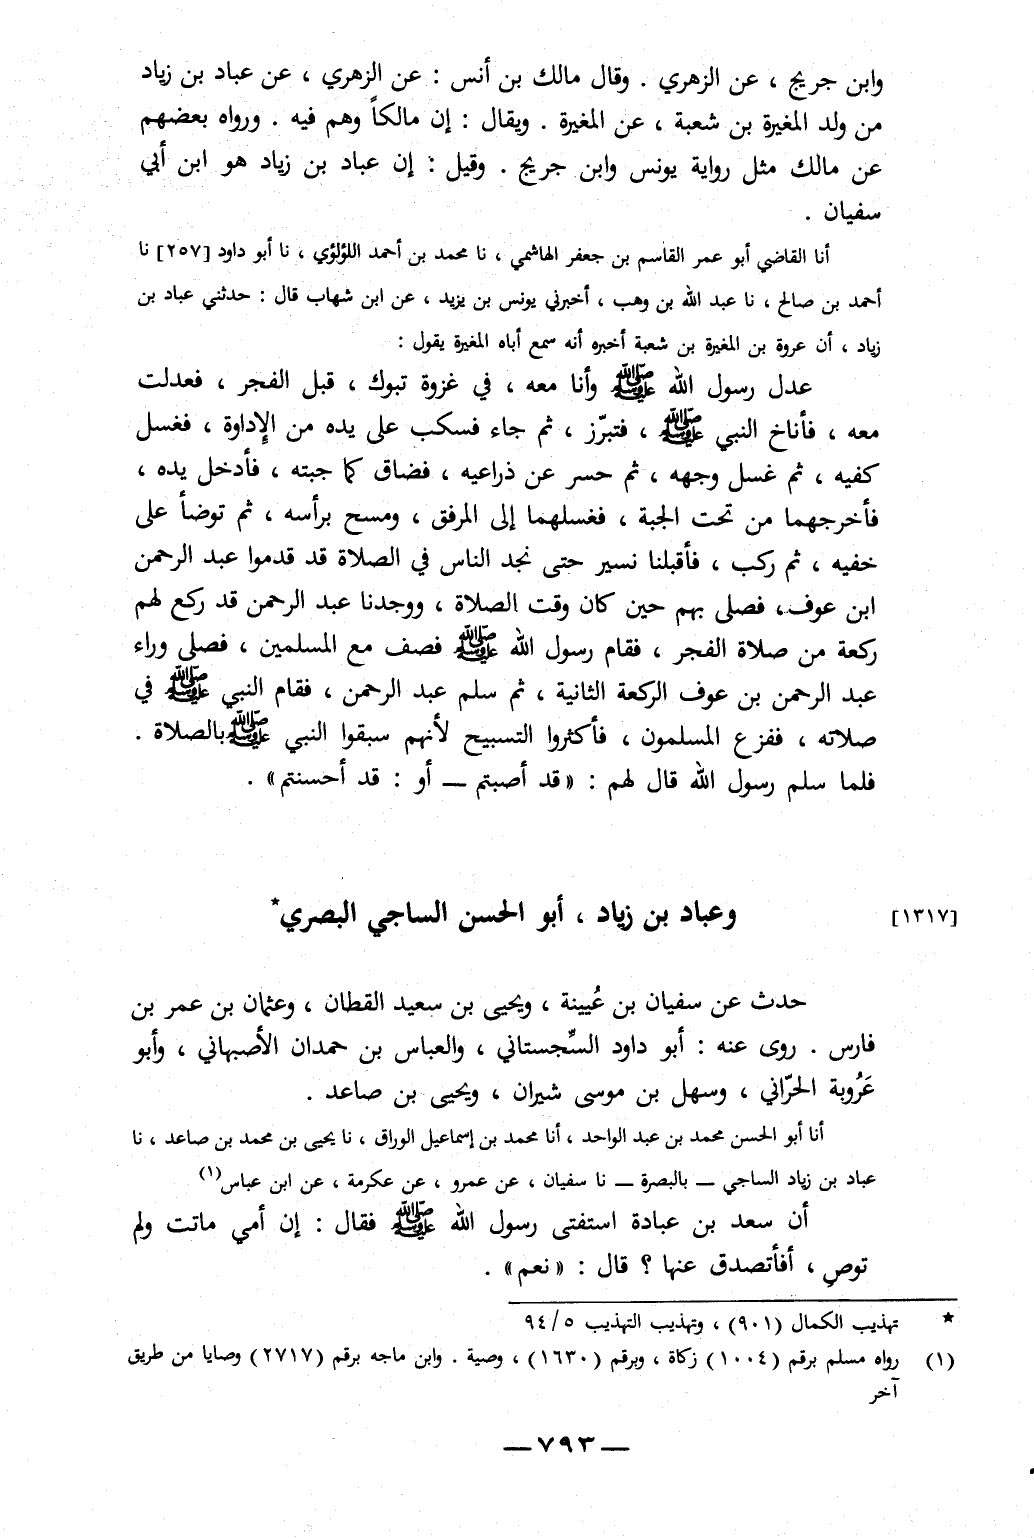 وابن جريج ، عن الزهري . وقال مالك بن أنس : عن الزهري ، عن عباد بن زياد
من ولد المغيرة بن شعبة ، عن المغيرة . ويقال : إن مالكاً وهم فيه . ورواه بعضهم
عن مالك مثل رواية يونس وابن جريج . وقيل : إن عباد بن زياد هو ابن أبي
سفيان .
أنا القاضي أبو عمر القاسم بن جعفر الهاشمي ، نا محمد بن أحمد اللؤلؤي ، نا أبو داود [٢٥٧] نا
أحمد بن صالح ، نا عبد الله بن وهب ، أخبرني يونس بن يزيد ، عن ابن شهاب قال : حدثني عباد بن
زياد ، أن عروة بن المغيرة بن شعبة أخبره أنه سمع أباه المغيرة يقول :
عدل رسول الله ﷺ وأنا معه ، في غزوة تبوك ، قبل الفجر ، فعدلت
معه ، فأناخ النبي ﷺ ، فتبرّز ، ثم جاء فسكب على يده من الإداوة ، فغسل
كفيه ، ثم غسل وجهه ، ثم حسر عن ذراعيه ، فضاق كما جبته ، فأدخل يده ،
فأخرجهما من تحت الجبة ، فغسلهما إلى المرفق ، ومسح برأسه ، ثم توضأ على
خفيه ، ثم ركب ، فأقبلنا نسير حتى نجد الناس في الصلاة قد قدموا عبد الرحمن
ابن عوف ، فصلى بهم حين كان وقت الصلاة ، ووجدنا عبد الرحمن قد ركع لهم
ركعة من صلاة الفجر ، فقام رسول الله ﷺ فصف مع المسلمين ، فصلى وراء
عبد الرحمن بن عوف الركعة الثانية ، ثم سلم عبد الرحمن ، فقام النبي ﷺ في
صلاته ، ففزع المسلمون ، فأكثروا التسبيح لأنهم سبقوا النبي ﷺ بالصلاة .
فلما سلم رسول الله قال لهم : « قد أصبتم ــ أو : قد أحسنتم » .
[١٣١٧] وعباد بن زياد ، أبو الحسن الساجي البصري*
حدث عن سفيان بن عُيينة ، ويحيى بن سعيد القطان ، وعثمان بن عمر بن
فارس . روى عنه : أبو داود السِّجستاني ، والعباس بن حمدان الأصبهاني ، وأبو
عَرُوبة الحرّاني ، وسهل بن موسى شيران ، ويحيى بن صاعد .
أنا أبو الحسن محمد بن عبد الواحد ، أنا محمد بن إسماعيل الوراق ، نا يحيى بن محمد بن صاعد ، نا
عباد بن زياد الساجي ــ بالبصرة ــ نا سفيان ، عن عمرو ، عن عكرمة ، عن ابن عباس(١)
أن سعد بن عبادة استفتى رسول الله ﷺ فقال : إن أمي ماتت ولم
توصِ ، أفأتصدق عنها ؟ قال : « نعم » .
* تهذيب الكمال (٩٠١) ، وتهذيب التهذيب ٩٤/٥
(١) رواه مسلم برقم (١٠٠٤) زكاة ، وبرقم (١٦٣٠) ، وصية . وابن ماجه برقم (٢٧١٧) وصايا من طريق
آخر
ــ ٧٩٣ ــ